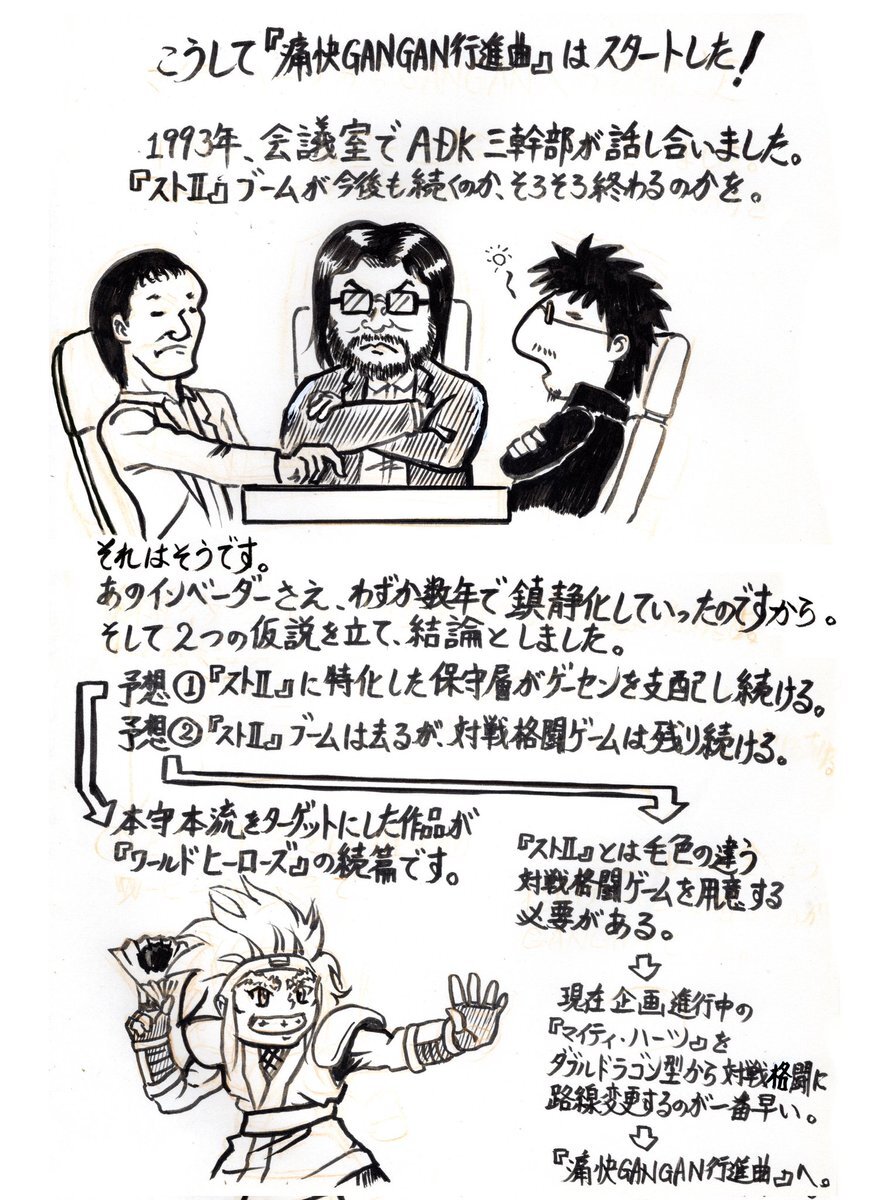 こうして『痛快GANGAN行進曲』はスタートした!
1993年、会議室でADK三幹部が話し合いました。
『ストⅡ』ブームが今後も続くのか、そろそろ終わるのかを。
それはそうです。
あのインベーダーさえ、わずか数年で鎮静化していったのですから。
そして2つの仮説を立て、結論としました。
予想①『ストⅡ』に特化した保守層がゲーセンを支配し続ける。
予想②『ストⅡ』ブームは去るが、対戦格闘ゲームは残り続ける。
本守本流をターゲットにした作品が
『ワールドヒーローズ』の続篇です。
『ストⅡ』とは毛色の違う
対戦格闘ゲームを用意する
必要がある。
現在企画進行中の
『マイティ・ハーツ』を
ダブルドラゴン型から対戦格闘に
路線変更するのが一番早い。
『痛快GANGAN行進曲』へ。